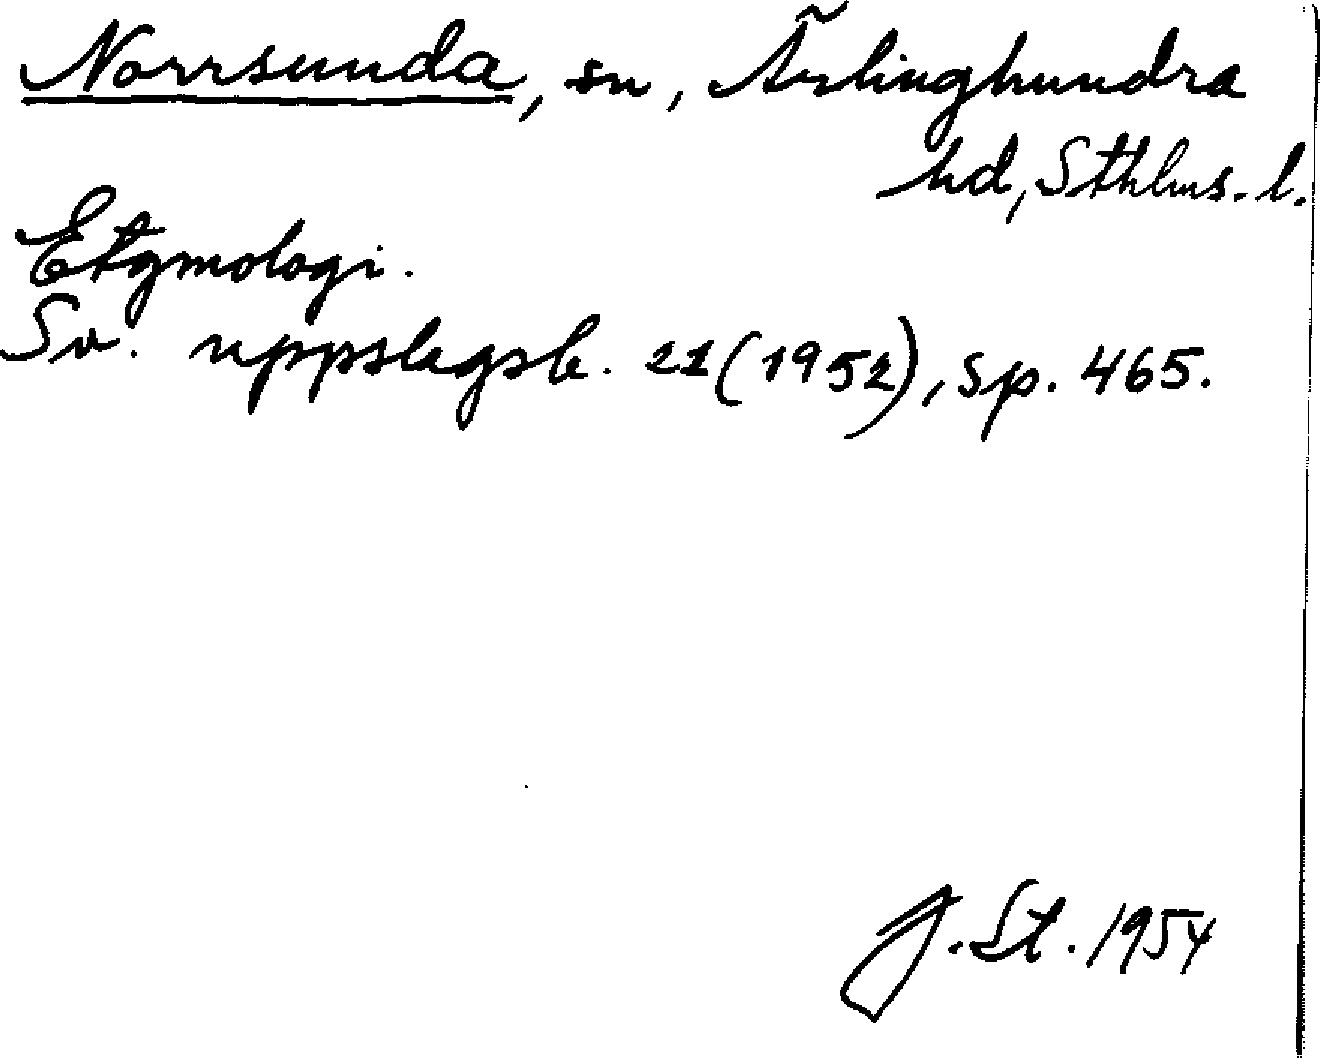 Norrsunda, sn, Ärlinghundra
hd, Sthlms. l.
Etymologi.
Sv. uppslagsb. 21 (1952), sp. 465.
J. St. 1954